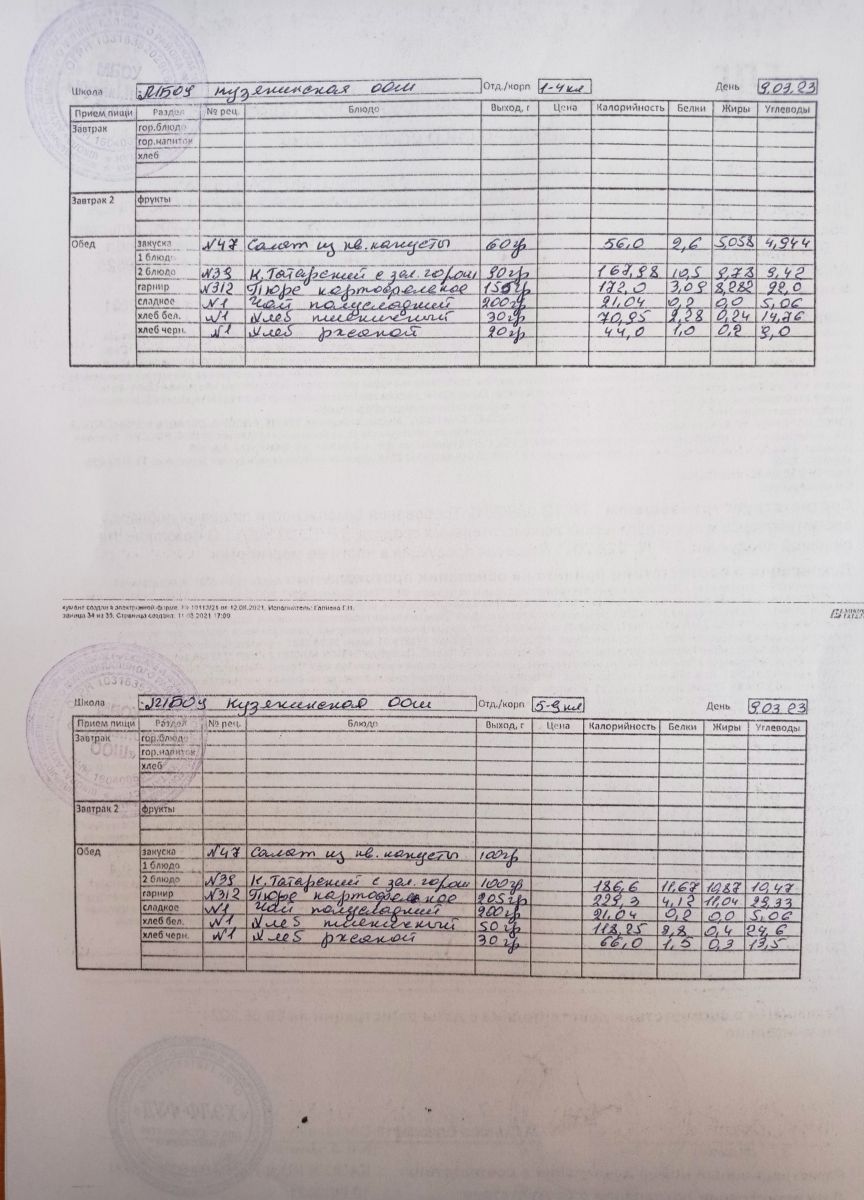 Школа МБОУ Кузякинская ООШ Отд./корп 1-4 кл День 9.03.23
Прием пищи Раздел № рец. Блюдо Выход, г Цена Калорийность Белки Жиры Углеводы
Завтрак гор.блюдо
гор.напиток
хлеб
Завтрак 2 фрукты
Обед закуска №47 Салат из кв. капусты 60 гр 56,0 2,6 5,058 4,944
1 блюдо
2 блюдо №39 К. Татарский с зел. горош 90 гр 167,98 10,5 9,78 9,42
гарнир №312 Пюре картофельное 150 гр 172,0 3,09 8,282 22,0
сладкое №1 Чай полусладкий 200 гр 21,04 0,2 0,0 5,06
хлеб бел. №1 Хлеб пшеничный 30 гр 70,95 2,28 0,24 14,76
хлеб черн. №1 Хлеб ржаной 20 гр 44,0 1,0 0,2 9,0
кумент создан в электронной форме. № 10113/21 от 12.08.2021. Исполнитель:
раница 34 из 35. Страница создана: 11.08.2021 17:09
Школа МБОУ Кузякинская ООШ Отд./корп 5-9 кл День 9.03.23
Прием пищи Раздел № рец. Блюдо Выход, г Цена Калорийность Белки Жиры Углеводы
Завтрак гор.блюдо
гор.напиток
хлеб
Завтрак 2 фрукты
Обед закуска №47 Салат из кв. капусты 100 гр
1 блюдо
2 блюдо №39 К. Татарский с зел. горош 100 гр 186,6 11,67 10,87 10,47
гарнир №312 Пюре картофельное 205 гр 229,3 4,12 11,04 29,33
сладкое №1 Чай полусладкий 200 гр 21,04 0,2 0,0 5,06
хлеб бел. №1 Хлеб пшеничный 50 гр 118,25 3,8 0,4 24,6
хлеб черн. №1 Хлеб ржаной 30 гр 66,0 1,5 0,3 13,5